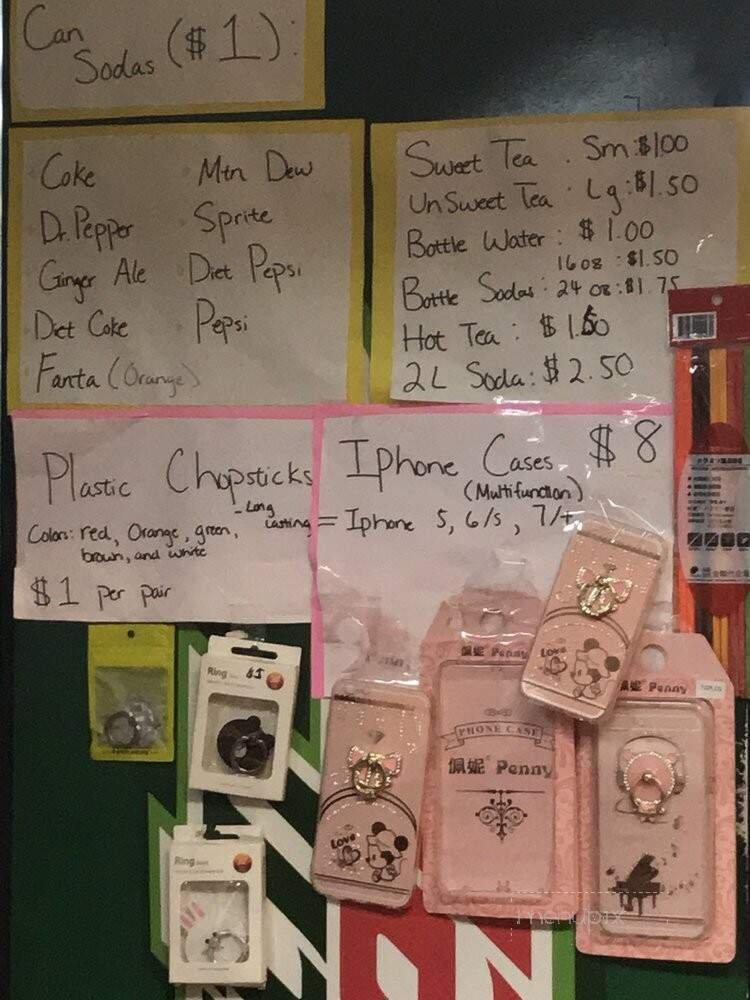 Can
Sodas ($1):
Coke Mtn Dew
Dr. Pepper Sprite
Ginger Ale Diet Pepsi
Diet Coke Pepsi
Fanta (Orange)
Sweet Tea . Sm:$1.00
UnSweet Tea . Lg:$1.50
Bottle Water: $1.00
16 oz :$1.50
Bottle Sodas: 24 oz:$1.75
Hot Tea: $1.50
2L Soda: $2.50
Plastic Chopsticks
- Long
lasting
Colors: red, Orange, green,
brown, and white
$1 per pair
Iphone Cases $8
(Multifunction)
= Iphone 5, 6/s, 7/+
Ring
Ring
Love
Love
佩妮 Penny
PHONE CASE
佩妮 Penny
佩妮 Penny
menupix